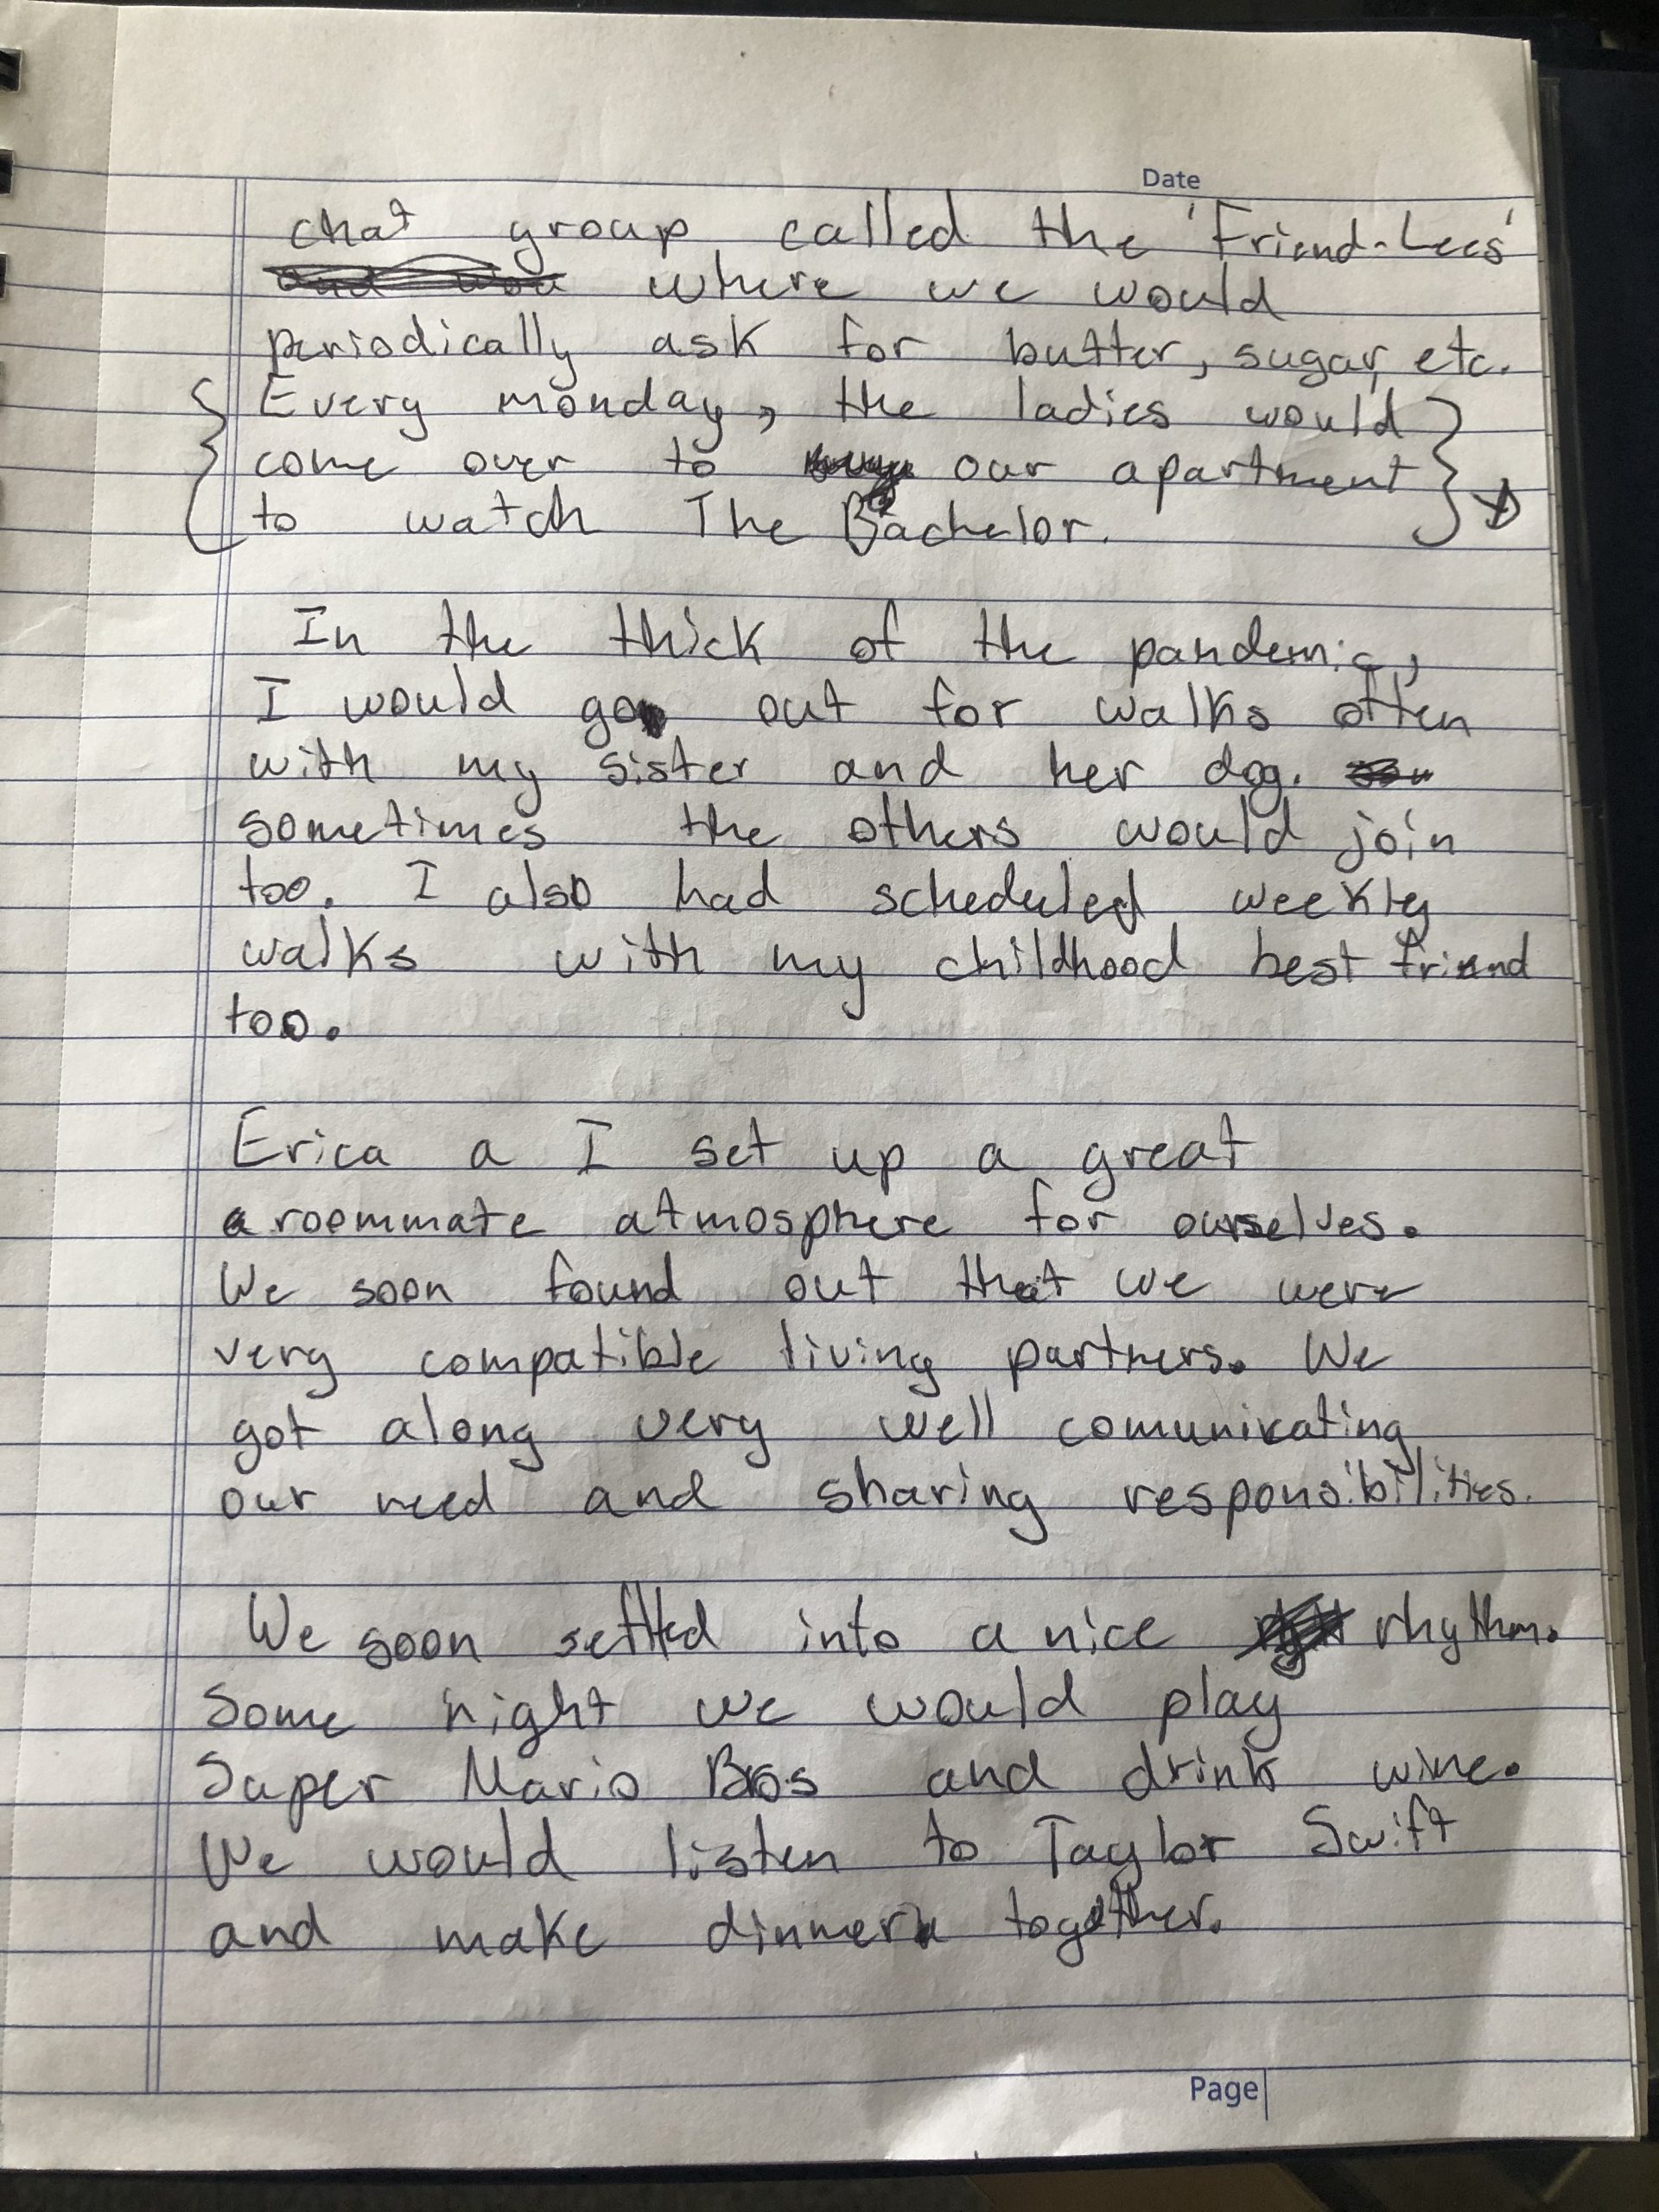 Date
chat group called the 'Friend-Lees'
where we would
periodically ask for butter, sugar, etc.
Every monday, the ladies would
come over to our apartment
to watch The Bachelor.
In the thick of the pandemic,
I would go out for walks often
with my sister and her dog.
sometimes the others would join
too. I also had scheduled weekly
walks with my childhood best friend
too.
Erica a I set up a great
a roommate atmosphere for ourselves.
We soon found out that we were
very compatible living partners. We
got along very well comunicating
our need and sharing responsibilities.
We soon settled into a nice rhythm.
Some night we would play
Super Mario Bros and drink wine.
We would listen to Taylor Swift
and make dinner together.
Page